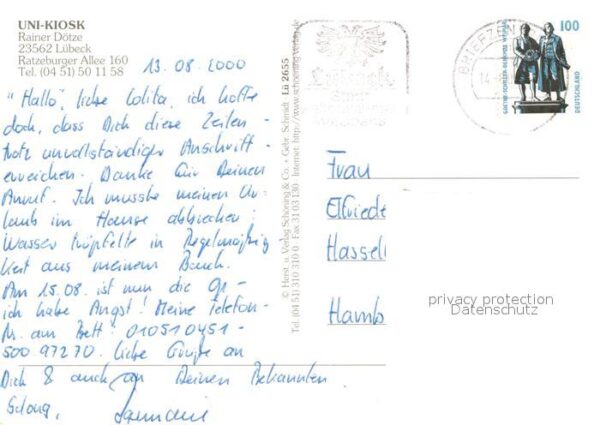 UNI-KIOSK
Rainer Dötze
23562 Lübeck
Ratzeburger Allee 160
Tel. (04 51) 50 11 58
13.08.2000
"Hallo", liebe Lolita, ich hoffe
doch, dass Dich diese Zeilen -
trotz unvollständiger Anschrift -
erreichen. Danke für Deinen
Anruf. Ich musste meinen Ur-
laub im Hause abbrechen:
Wasser tröpfelte in Regelmäßig
keit aus meinem Bauch.
Am 15.08. ist nun die Op -
ich habe Angst! Meine Telefon-
Nr. am Bett: 010510451 -
500 97270. Liebe Grüße an
Dich & auch an Deinen Bekannten
Solong,
© Herst. u. Verlag Schöning & Co. + Gebr. Schmidt Lü 2655
Tel. (04 51) 310 310 0 · Fax 31 03 130 · Internet: http://www.schoening-verlag.de
Lübeck
BRIEFZEN
14.
100
DEUTSCHLAND
GOETHE-SCHILLER-DENKMAL WEIMAR
Frau
Elfriede
Hassel
Hamb
privacy protection
Datenschutz